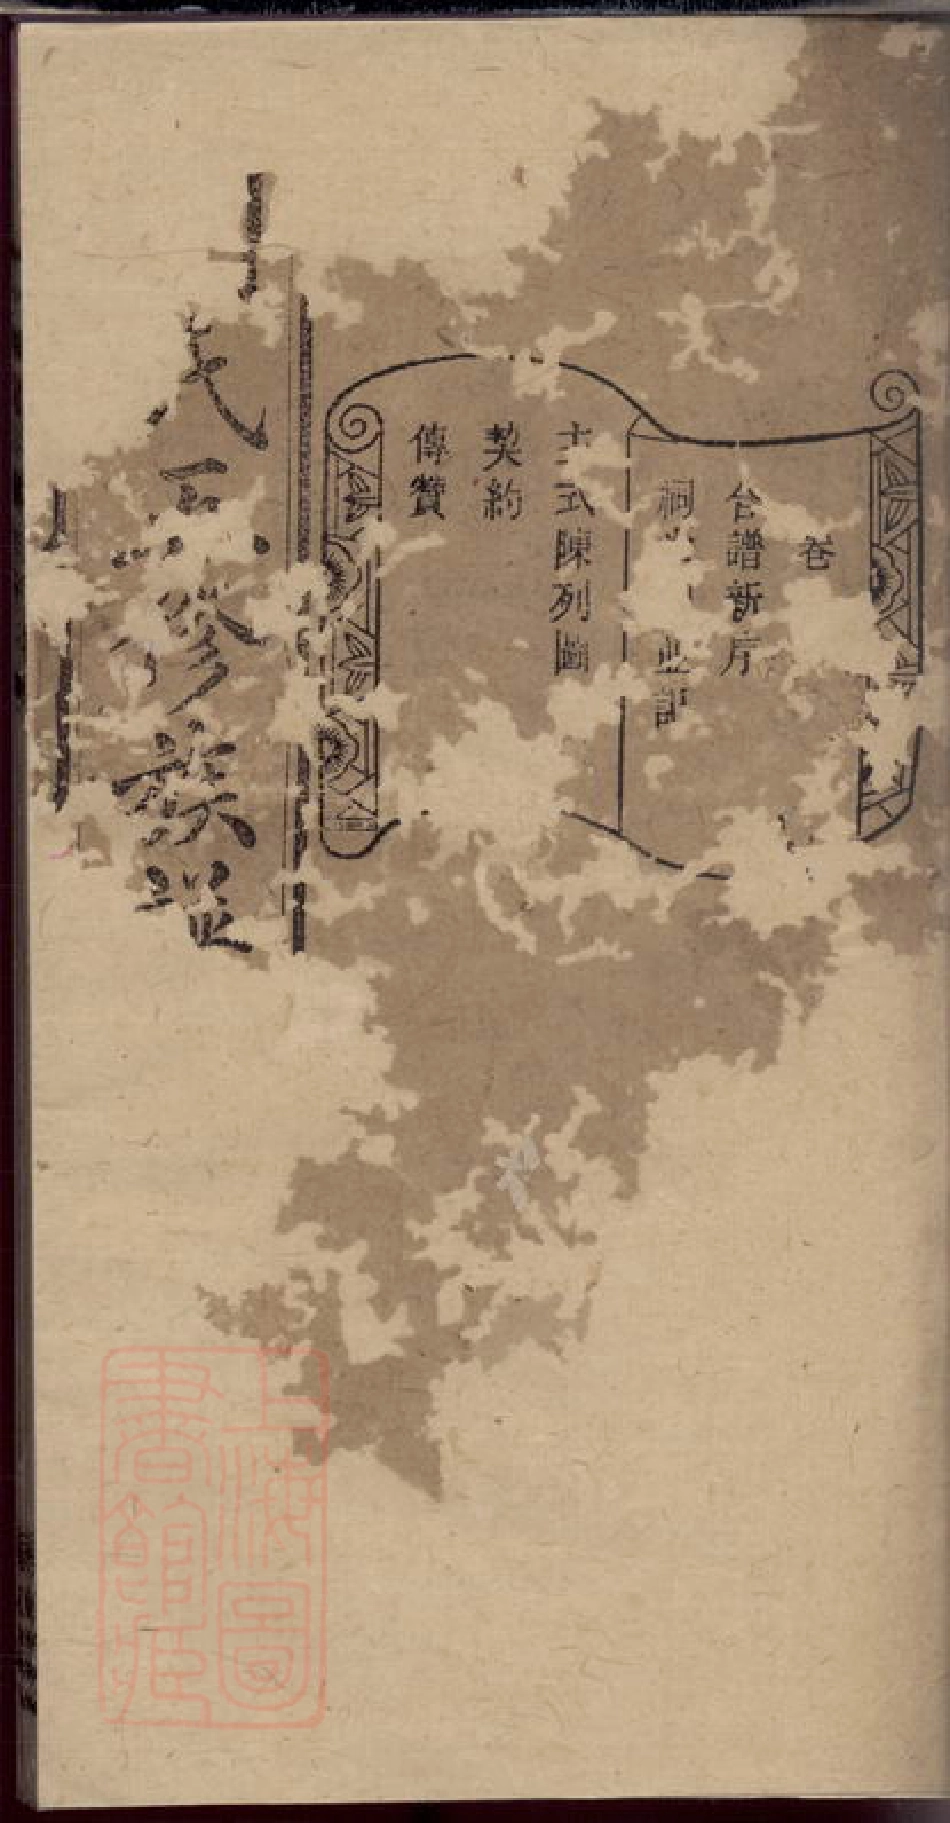 卷
合譜新序
祠
並記
主式陳列圖
契約
傳贊
氏五修族譜
上海圖書館藏